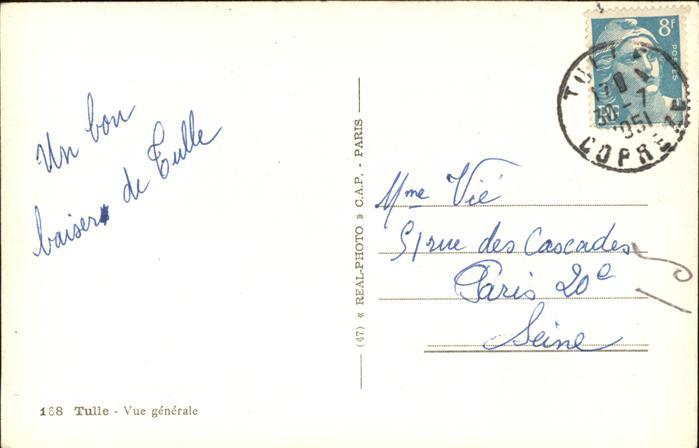 Un bon
baiser de Tulle
168 Tulle - Vue générale
(47) « REAL-PHOTO » C.A.P. - PARIS
8f
POSTES
TULLE
30-7
1951
CORREZE
Mme Vié
51 rue des Cascades
Paris 20e
Seine